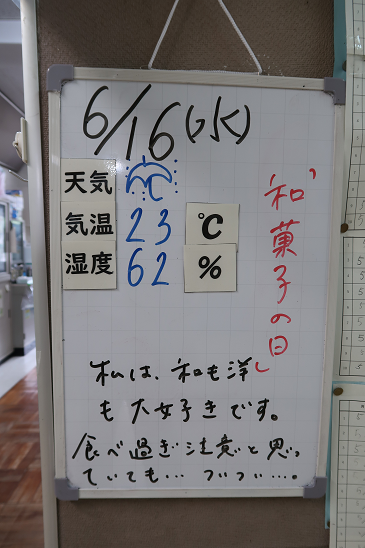 6/16(水)
天気
気温 23 ℃
湿度 62 %
「和菓子の日」
私は、和も洋
も大好きです。
食べ過ぎ注意と思っ
ていても… ついつい…。